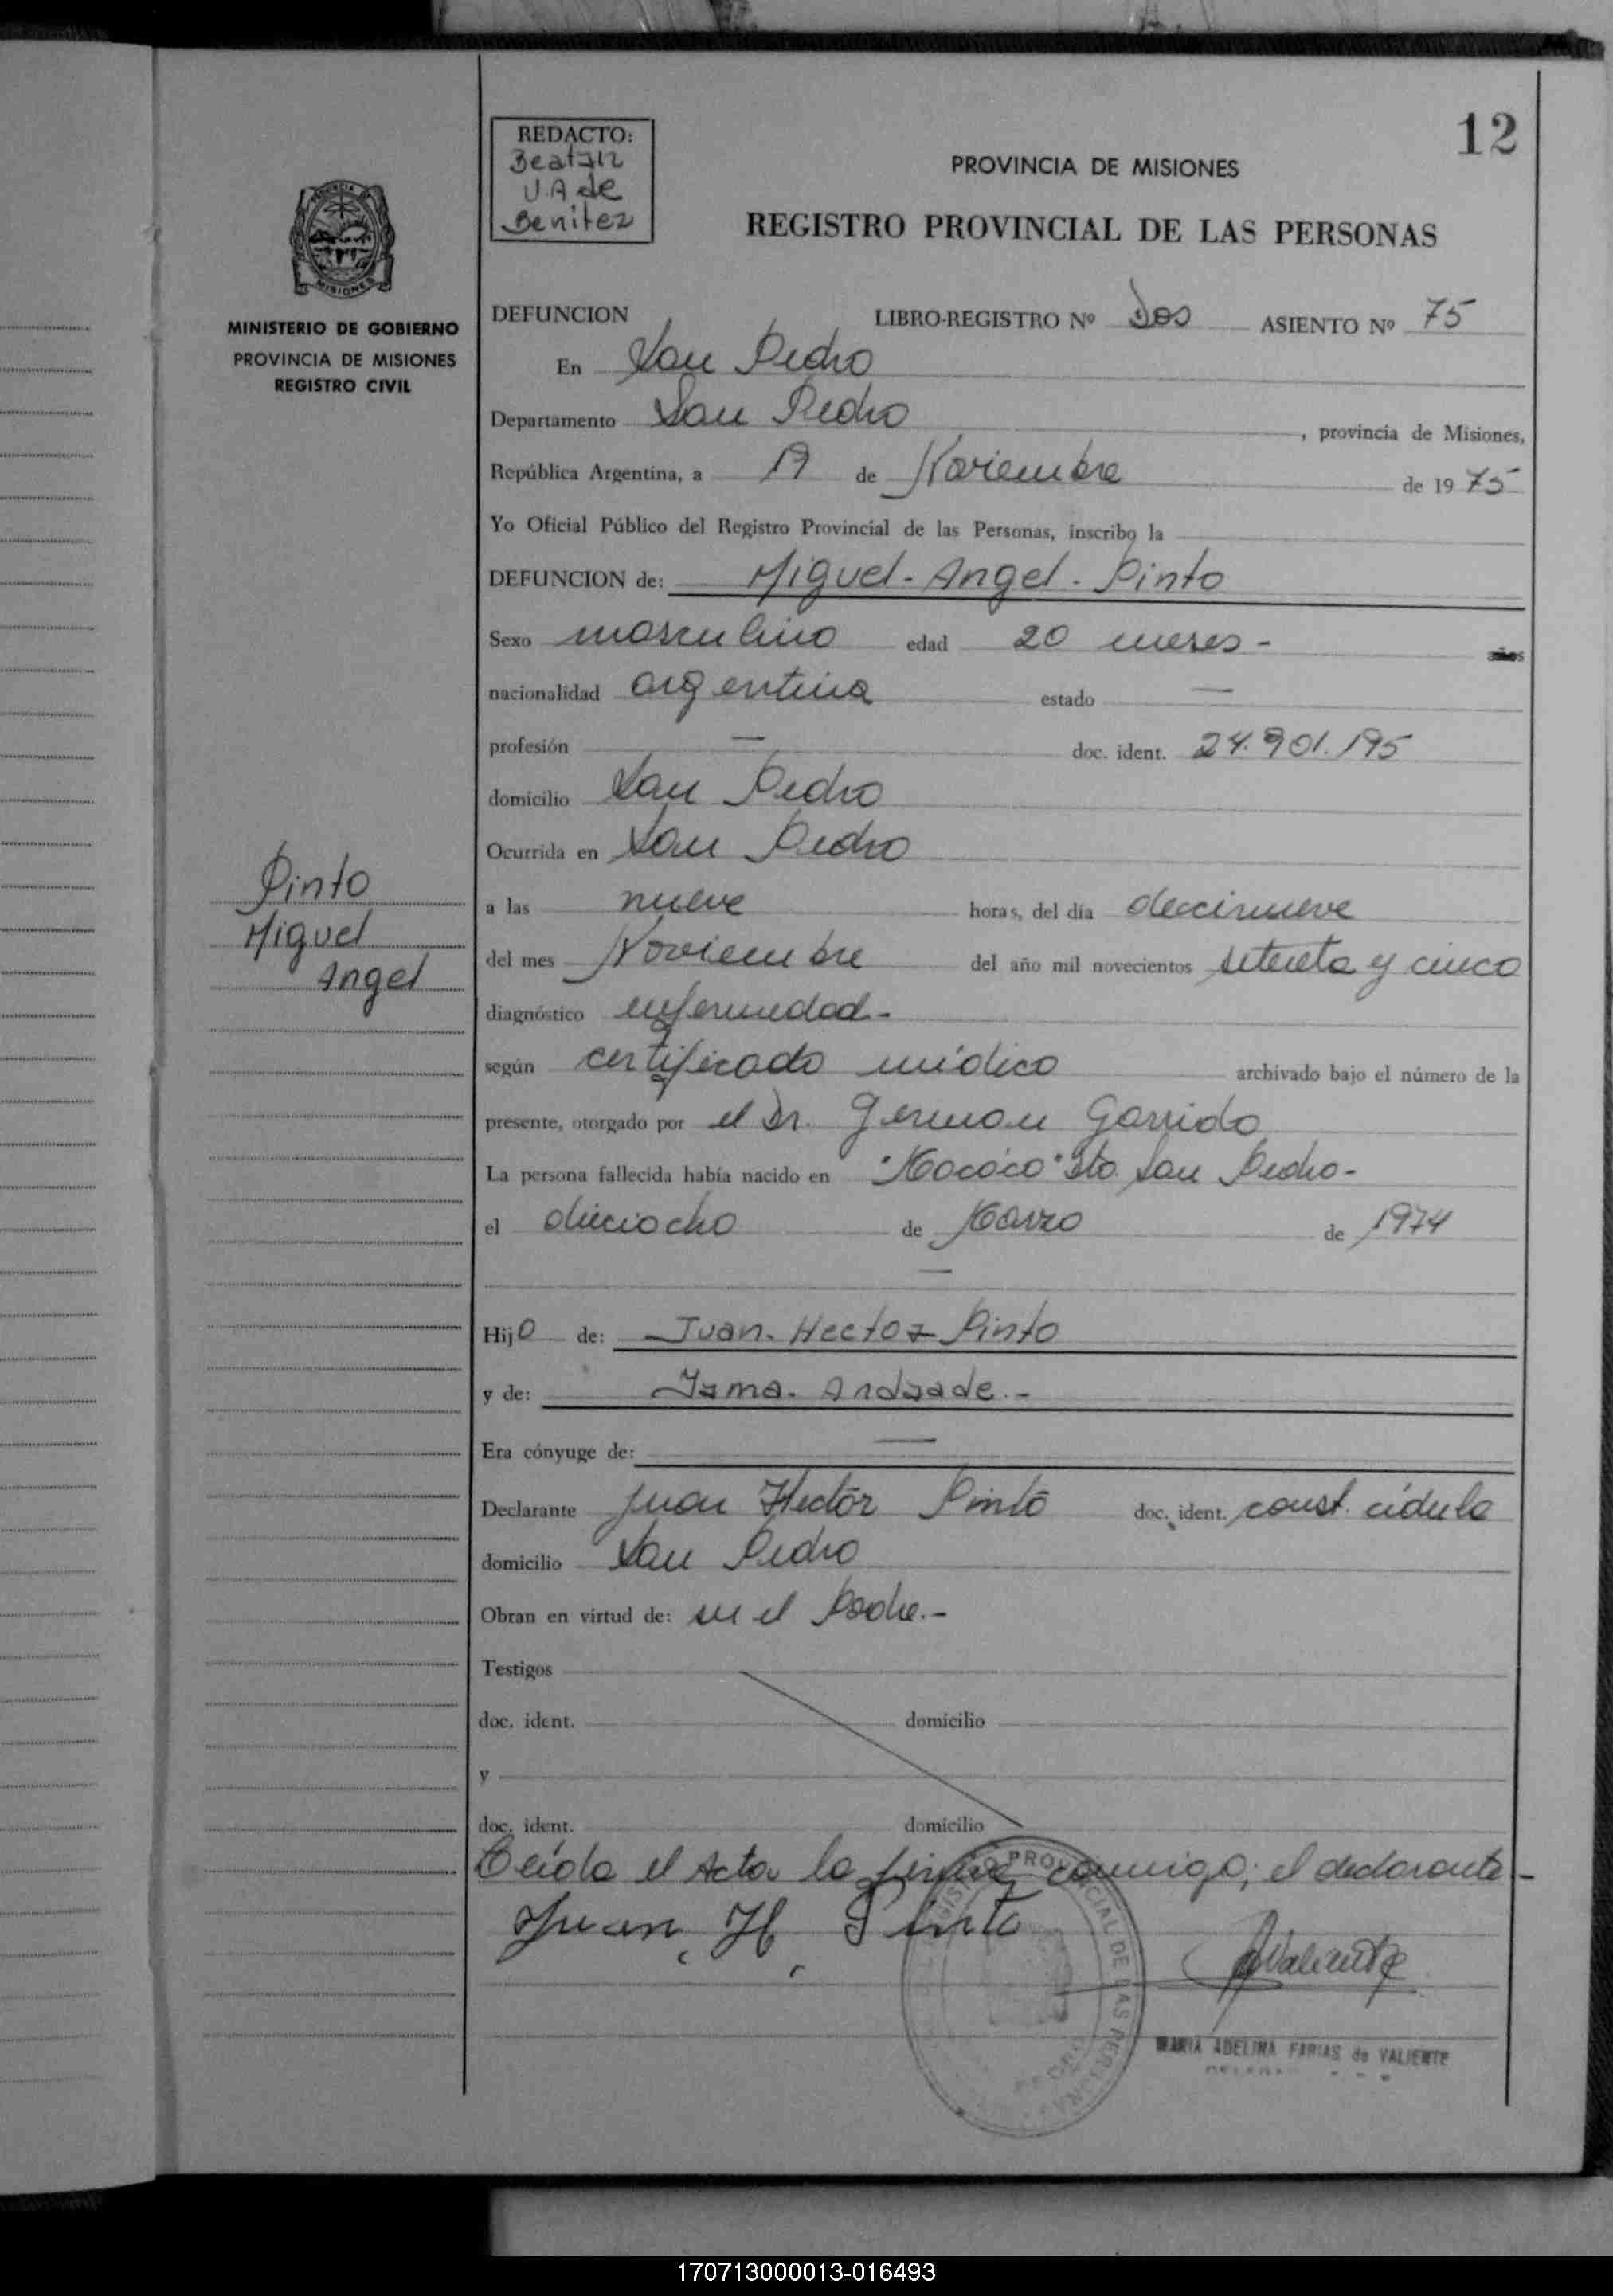 12
REDACTO:
Beatriz
V.A de
Benitez
PROVINCIA DE MISIONES
REGISTRO PROVINCIAL DE LAS PERSONAS
MISIONES
MINISTERIO DE GOBIERNO
PROVINCIA DE MISIONES
REGISTRO CIVIL
DEFUNCION LIBRO-REGISTRO Nº Dos ASIENTO Nº 75
En San Pedro
Departamento San Pedro , provincia de Misiones,
República Argentina, a 19 de Noviembre de 1975
Yo Oficial Público del Registro Provincial de las Personas, inscribo la
DEFUNCION de: Miguel-Angel-Pinto
Sexo masculino edad 20 meses- años
nacionalidad argentina estado —
profesión — doc. ident. 24.901.195
domicilio San Pedro
Ocurrida en San Pedro
Pinto
Miguel
Angel
a las nueve horas, del día diecinueve
del mes Noviembre del año mil novecientos setenta y cinco
diagnóstico enfermedad-
según certificado médico archivado bajo el número de la
presente, otorgado por el Dr. German Garrido
La persona fallecida había nacido en San Pedro-
el dieciocho de Marzo de 1974
—
Hijo de: Juan-Hector Pinto
y de: Irma-Andrade.-
Era cónyuge de: —
Declarante Juan Hectór Pintó doc. ident. const. cédula
domicilio San Pedro
Obran en virtud de: ser el Padre.-
Testigos
doc. ident. domicilio
y
doc. ident. domicilio
Leída el Acta la firma conmigo; el declarante-
Juan H. Pinto
Valiente
REGISTRO PROVINCIAL DE LAS PERSONAS
MARIA ADELINA FARIAS de VALIENTE
170713000013-016493